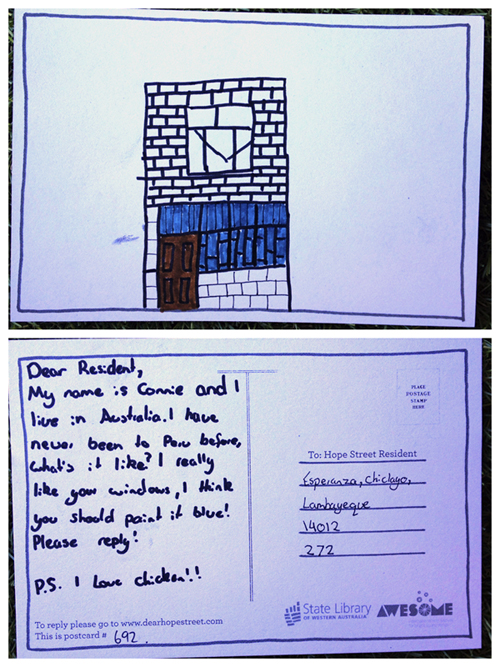 Dear Resident,
My name is Connie and I
live in Australia. I have
never been to Peru before,
what's it like? I really
like your windows, I think
you should paint it blue!
Please reply!
P.S. I love chicken!!
To reply please go to www.dearhopestreet.com
This is postcard # 692.
PLACE
POSTAGE
STAMP
HERE
To: Hope Street Resident
Esperanza, Chiclayo,
Lambayeque
14012
272
State Library
OF WESTERN AUSTRALIA
AWESOME